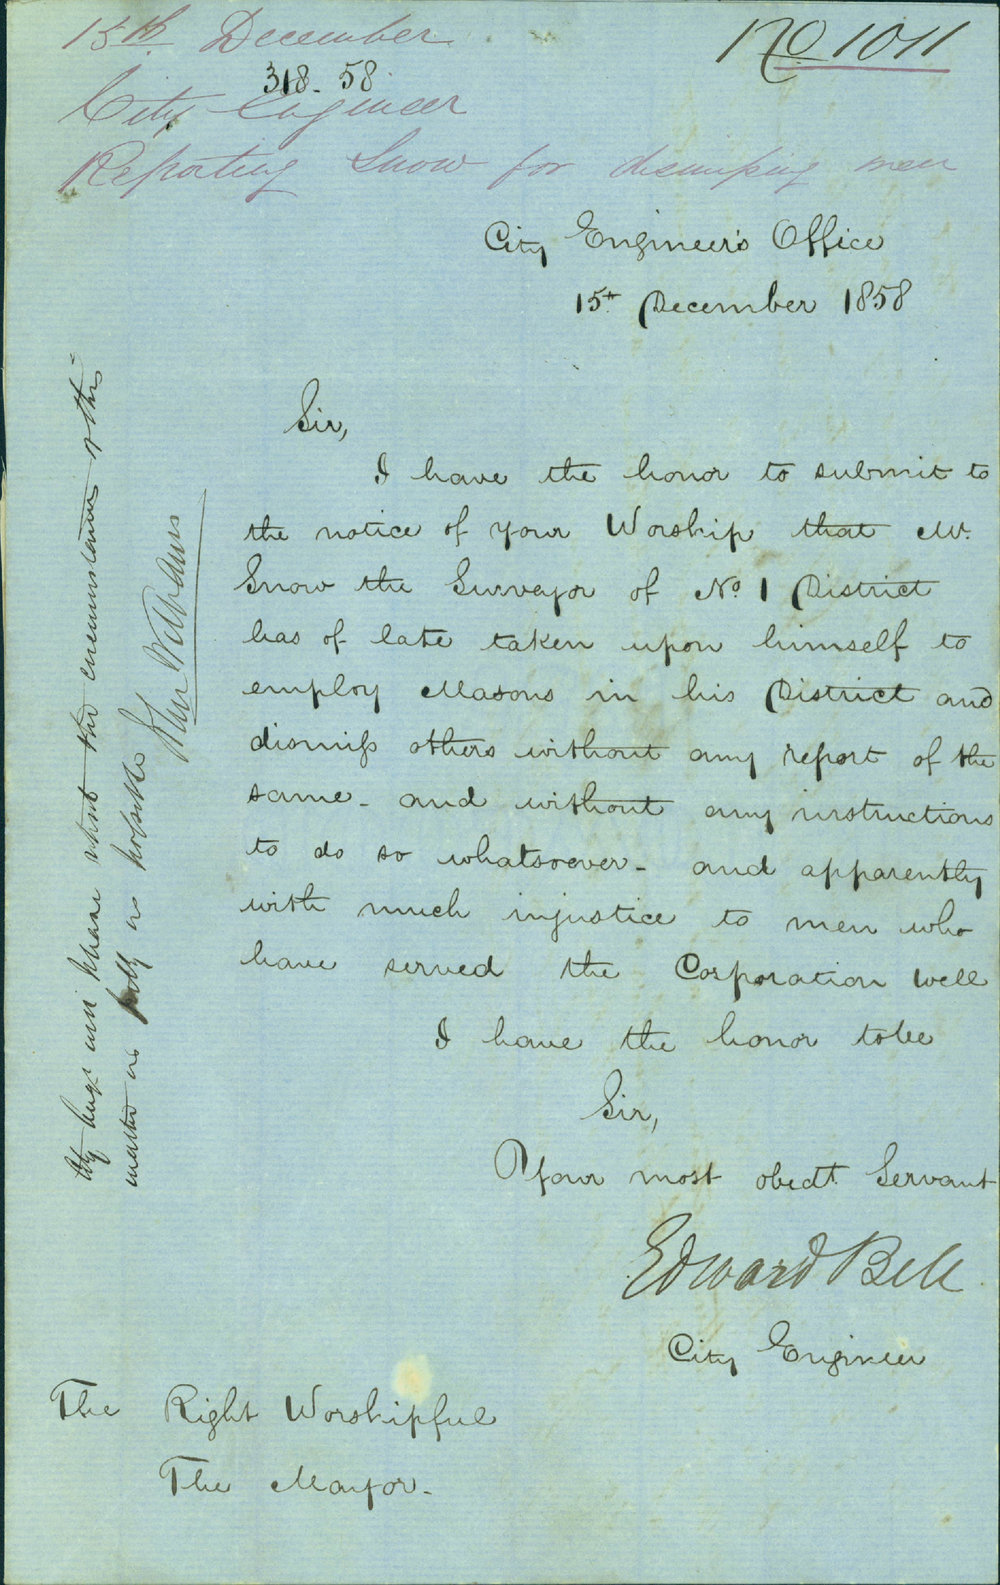 15th December
No 1011
318. 58
City Engineer
Reporting Snow for dismissing men
City Engineer's Office
15th December 1858
Sir,
I have the honor to submit to
the notice of your Worship that Mr.
Snow the Surveyor of No. 1 District
has of late taken upon himself to
employ Masons in his District and
dismiss others without any report of the
same - and without any instructions
to do so whatsoever - and apparently
with much injustice to men who
have served the Corporation well
I have the honor to be
Sir,
Your most obedt. Servant
Edward Bell
City Engineer
The Right Worshipful
The Mayor.
City Engr will please report the circumstances of this
matter as as possible